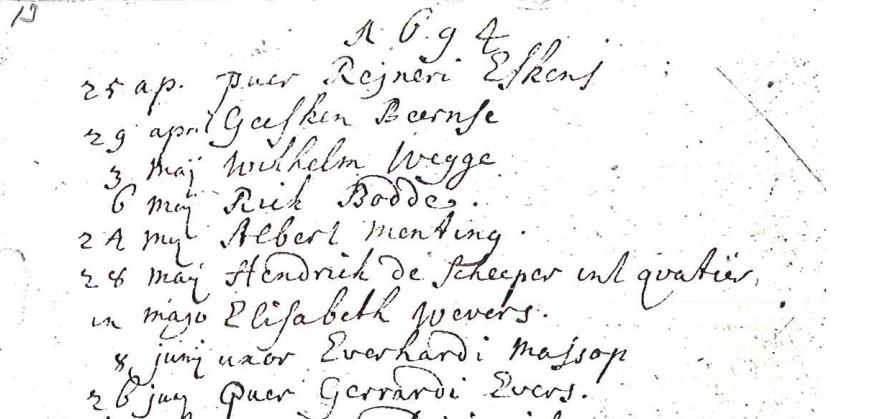 13
1694
25 ap. puer Rejneri Eskens
29 april Geesken Beernse
3 maij Wilhelm Wegge
6 maij Rick Bodde.
21 maij Albert Menting.
28 maij Hendrick de scheeper int qvatiér,
in majo Elisabeth Wevers.
8 junij uxor Everhardi Massop
26 junij puer Gerrardi Evers.